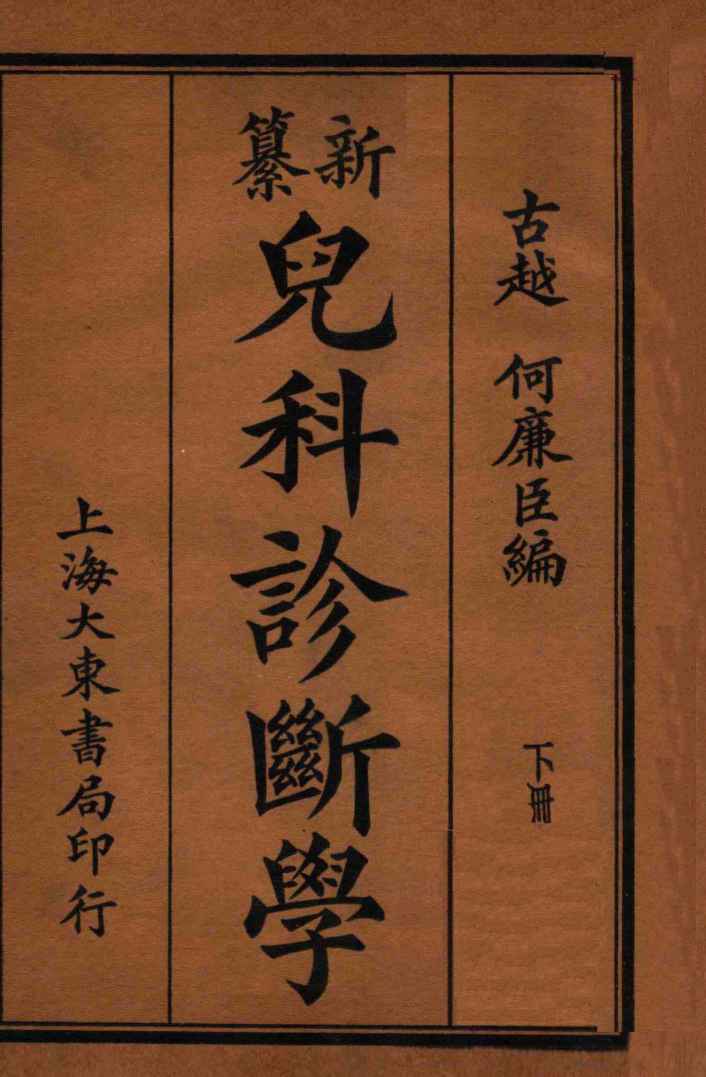 古越 何廉臣編 下冊
新纂
兒科診斷學
上海大東書局印行